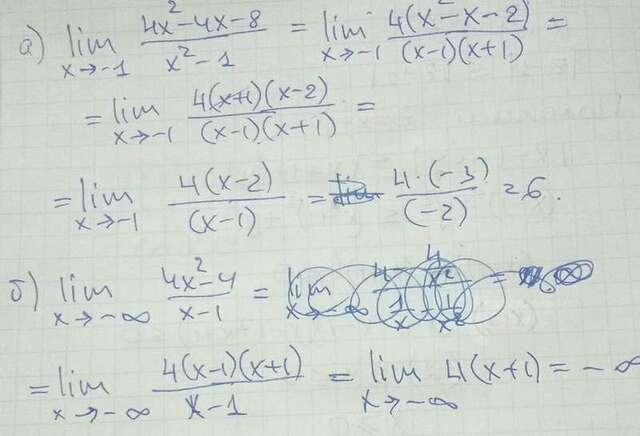 а) lim x→-1 4x²-4x-8 / x²-1 = lim x→-1 4(x²-x-2) / (x-1)(x+1) =
= lim x→-1 4(x+1)(x-2) / (x-1)(x+1) =
= lim x→-1 4(x-2) / (x-1) = 4·(-3) / (-2) = 6.
б) lim x→-∞ 4x²-4 / x-1 =
= lim x→-∞ 4(x-1)(x+1) / x-1 = lim x→-∞ 4(x+1) = -∞